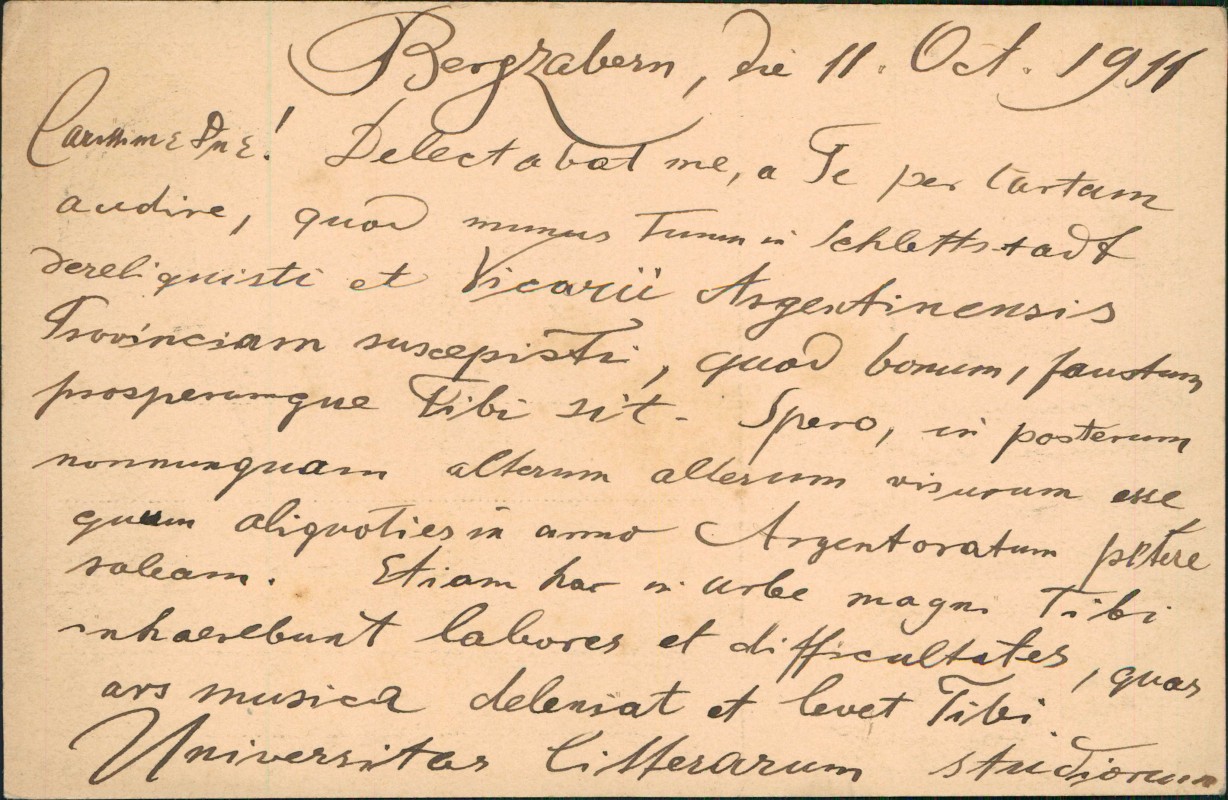 Bergzabern, die 11. Oct. 1911
Carissime Dne! Delectabat me, a Te per cartam
audire, quod munus Tuum in Schlettstadt
dereliquisti et Vicarii Argentinensis
Provinciam suscepisti, quod bonum, faustum
prosperumque Tibi sit. Spero, in posterum
nonnunquam alterum alterum visurum esse
quum aliquoties in anno Argentoratum petere
soleam. Etiam hac in urbe magni Tibi
inhaerebunt labores et difficultates, quas
ars musica deleniat et levet Tibi
Universitas litterarum studiorum